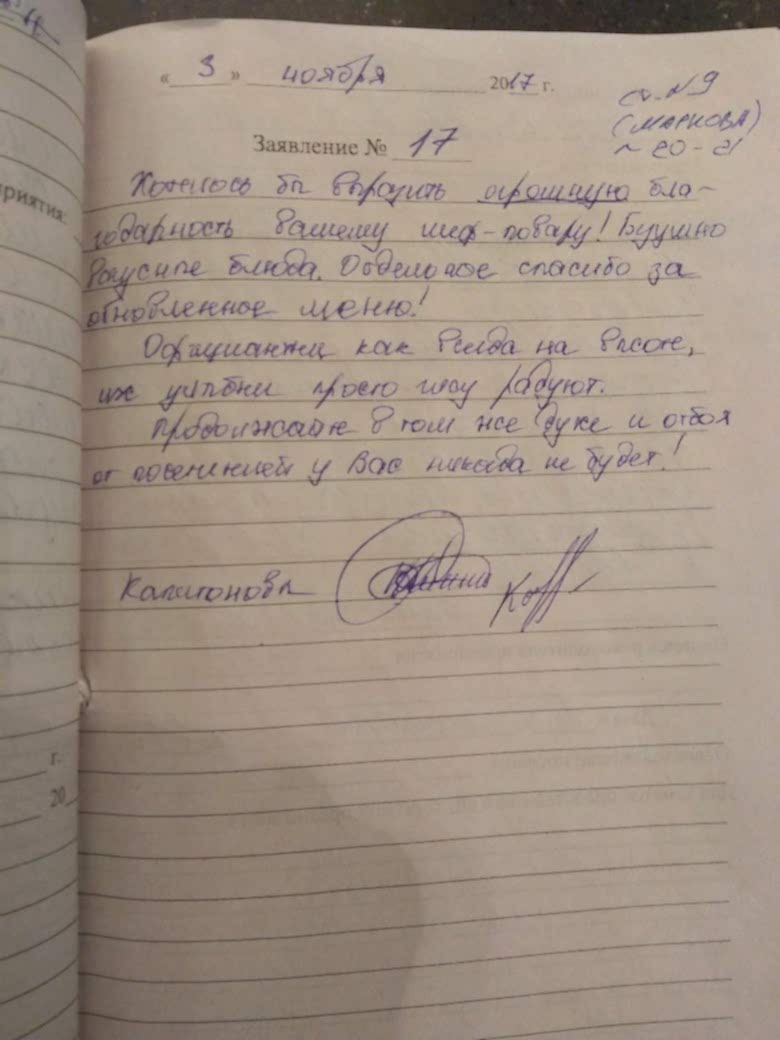 « 3 » ноября 2017 г.
ст. №9
(МАРКОВА)
~ 20-21
Заявление № 17
Хотелось бы выразить огромную бла-
годарность вашему шеф-повару! Безумно
вкусные блюда. Отдельное спасибо за
обновленное меню!
Официантки как всегда на высоте,
их улыбки просто душу радуют.
Продолжайте в том же духе и отбоя
от посетителей у Вас никогда не будет!
Капитонова
риятия:
г.
20